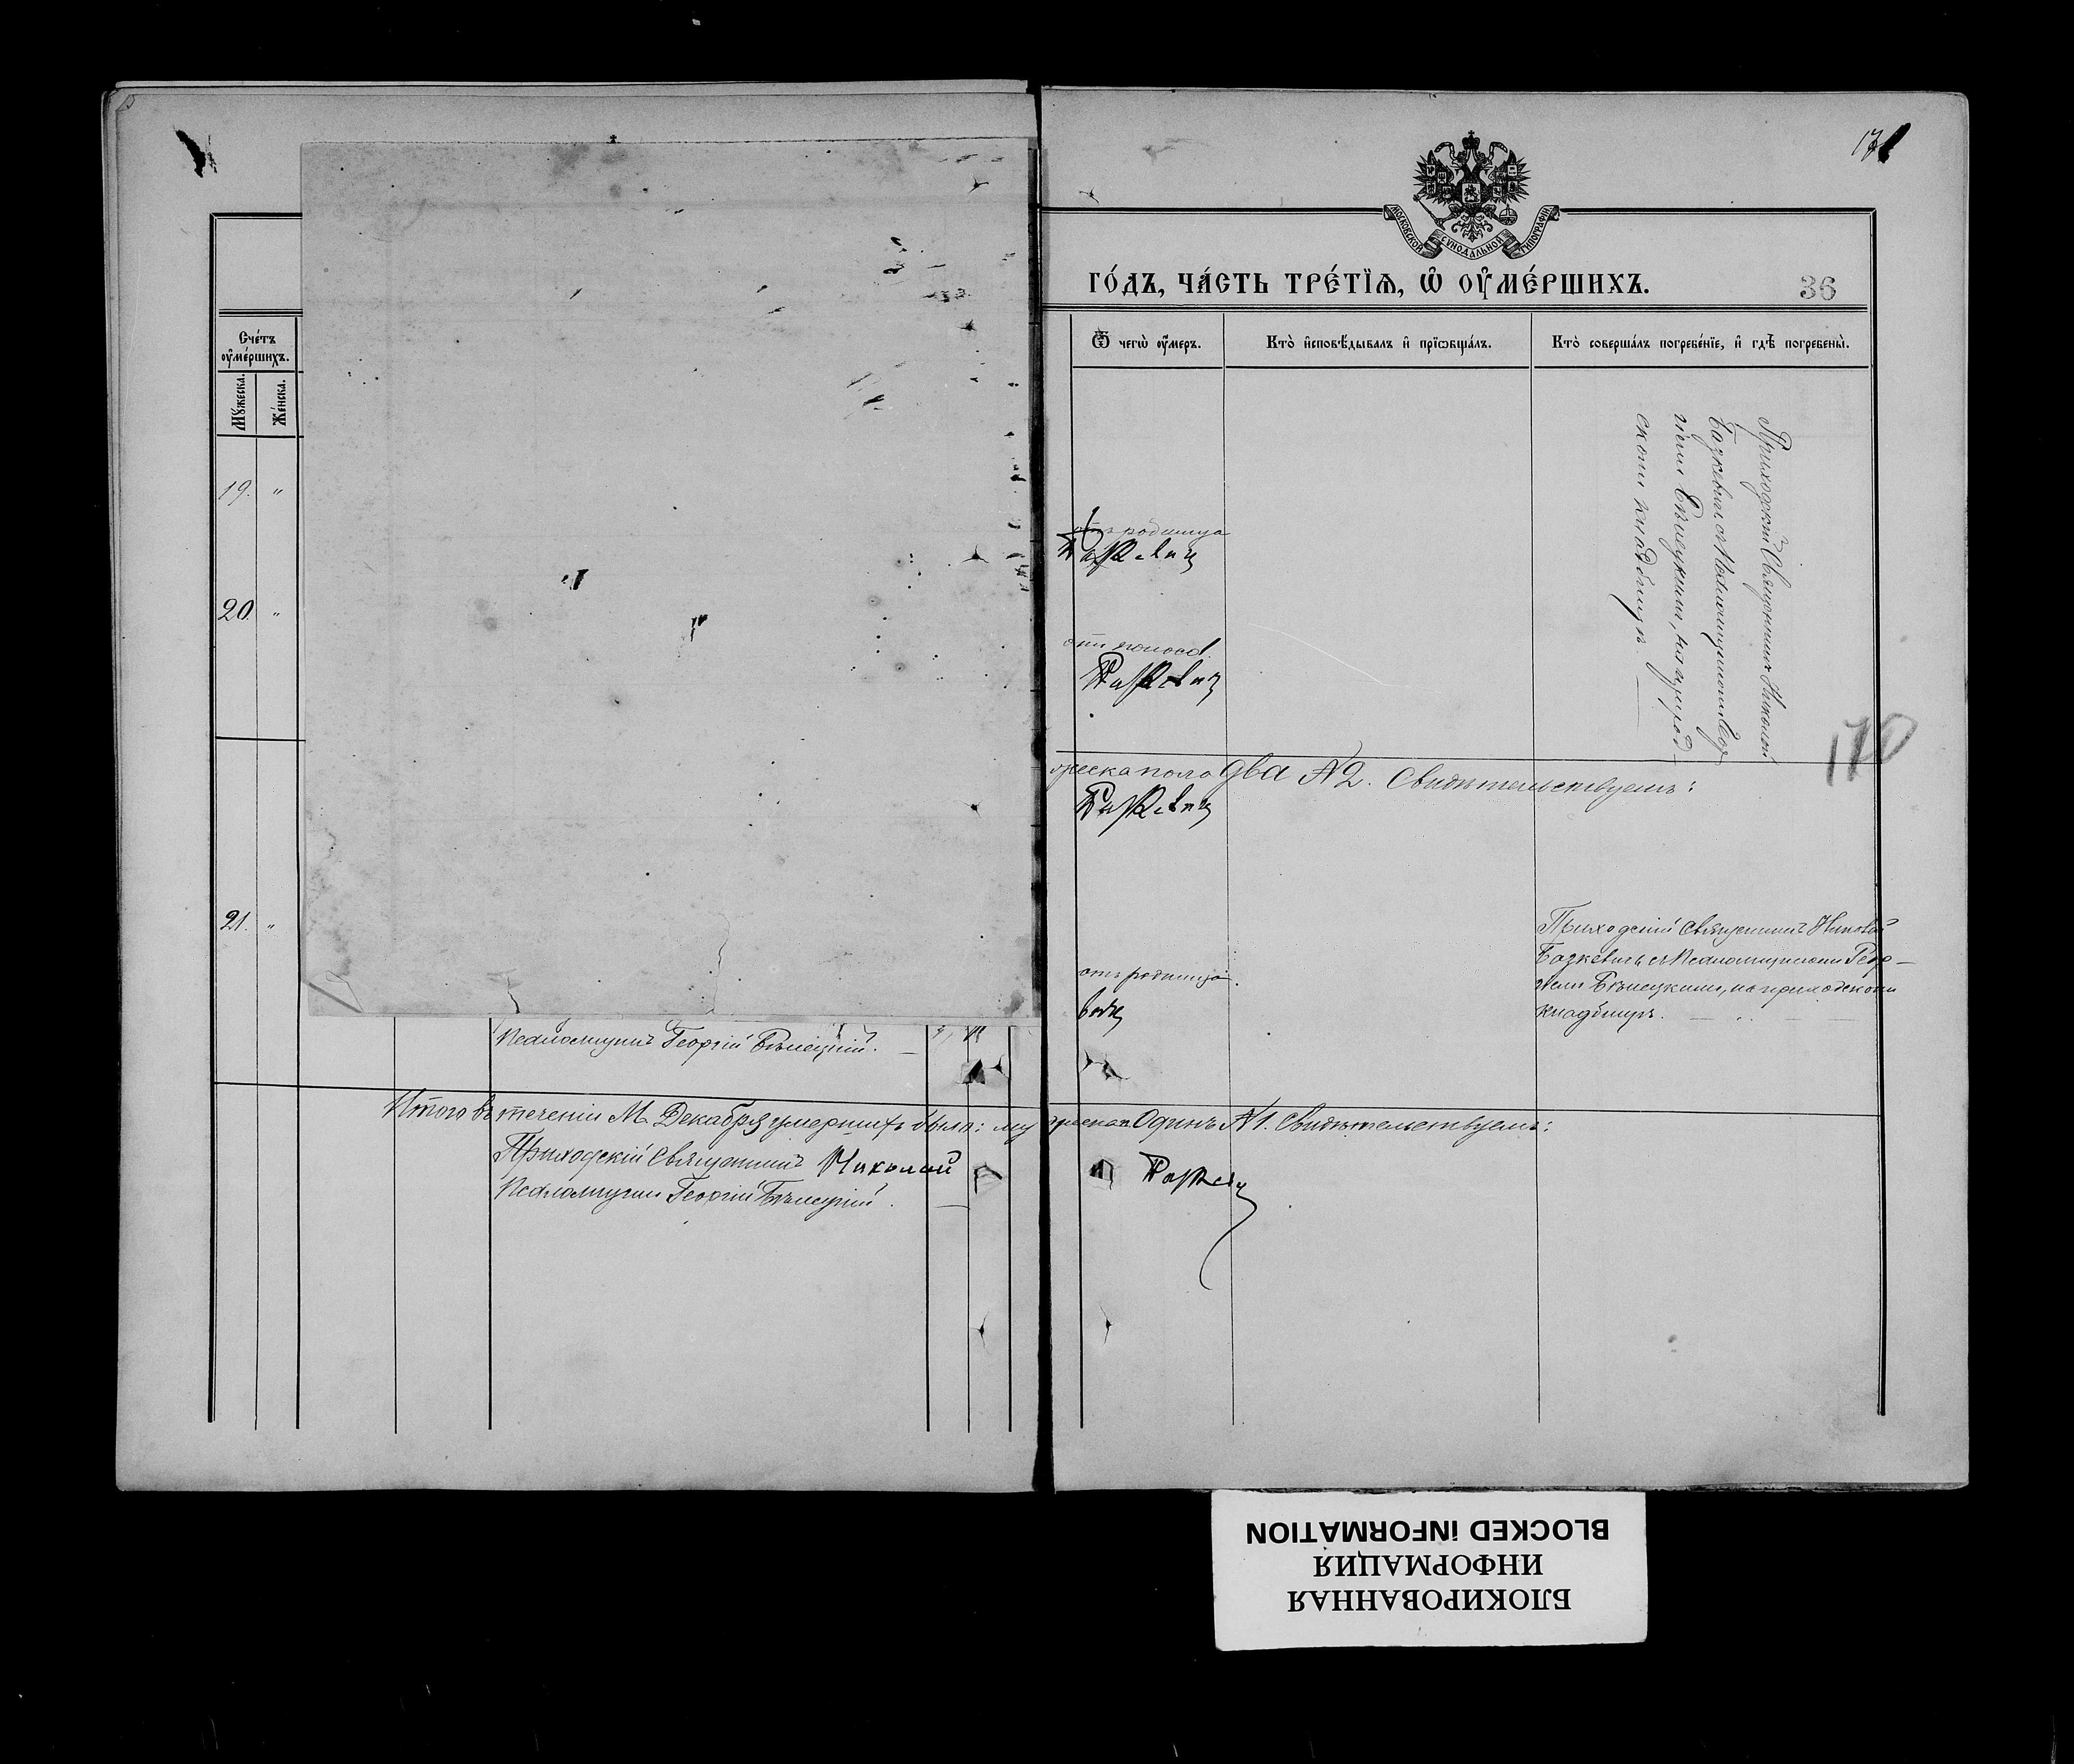 171
МОСКОВСКОЙ СѴНОДАЛЬНОЙ ТИПОГРАФІИ
ГО́ДЪ, ЧА́СТЬ ТРЕ́ТЇѦ, Ѡ҆ ОУ҆МЕ́РШИХЪ.
36
Сче́тъ
оу҆ме́ршихъ.
Мꙋ́жеска.
Же́нска.
Ѿ чегѡ̀ оу҆́меръ.
Кто̀ и҆сповѣ́дывалъ и҆ прїѡбща́лъ.
Кто̀ соверша́лъ погребе́нїе, и҆ гдѣ̀ погребены̀.
19. "
отъ родимца
Приходскій Священникъ Николай
Базкевичъ съ Псаломщикомъ Геор
гіемъ Бѣлецкимъ, на приход
скомъ кладбищѣ
20. "
отъ поноса.
170
жеска пола два №2. Свидѣтельствуемъ:
21. "
отъ родимца.
Приходскій Священникъ Николай
Базкевичъ съ Псаломщикомъ Геор-
гіемъ Бѣлецкимъ, на приходскомъ
кладбищѣ.
Псаломщикъ Георгій Бѣлецкій.
Итого въ теченіи М. Декабря умершихъ было: му
жеска Одинъ №1. Свидѣтельствуемъ:
Приходскій Священникъ Николай
Псаломщикъ Георгій Бѣлецкій.
БЛОКИРОВАННАЯ
ИНФОРМАЦИЯ
BLOCKED INFORMATION